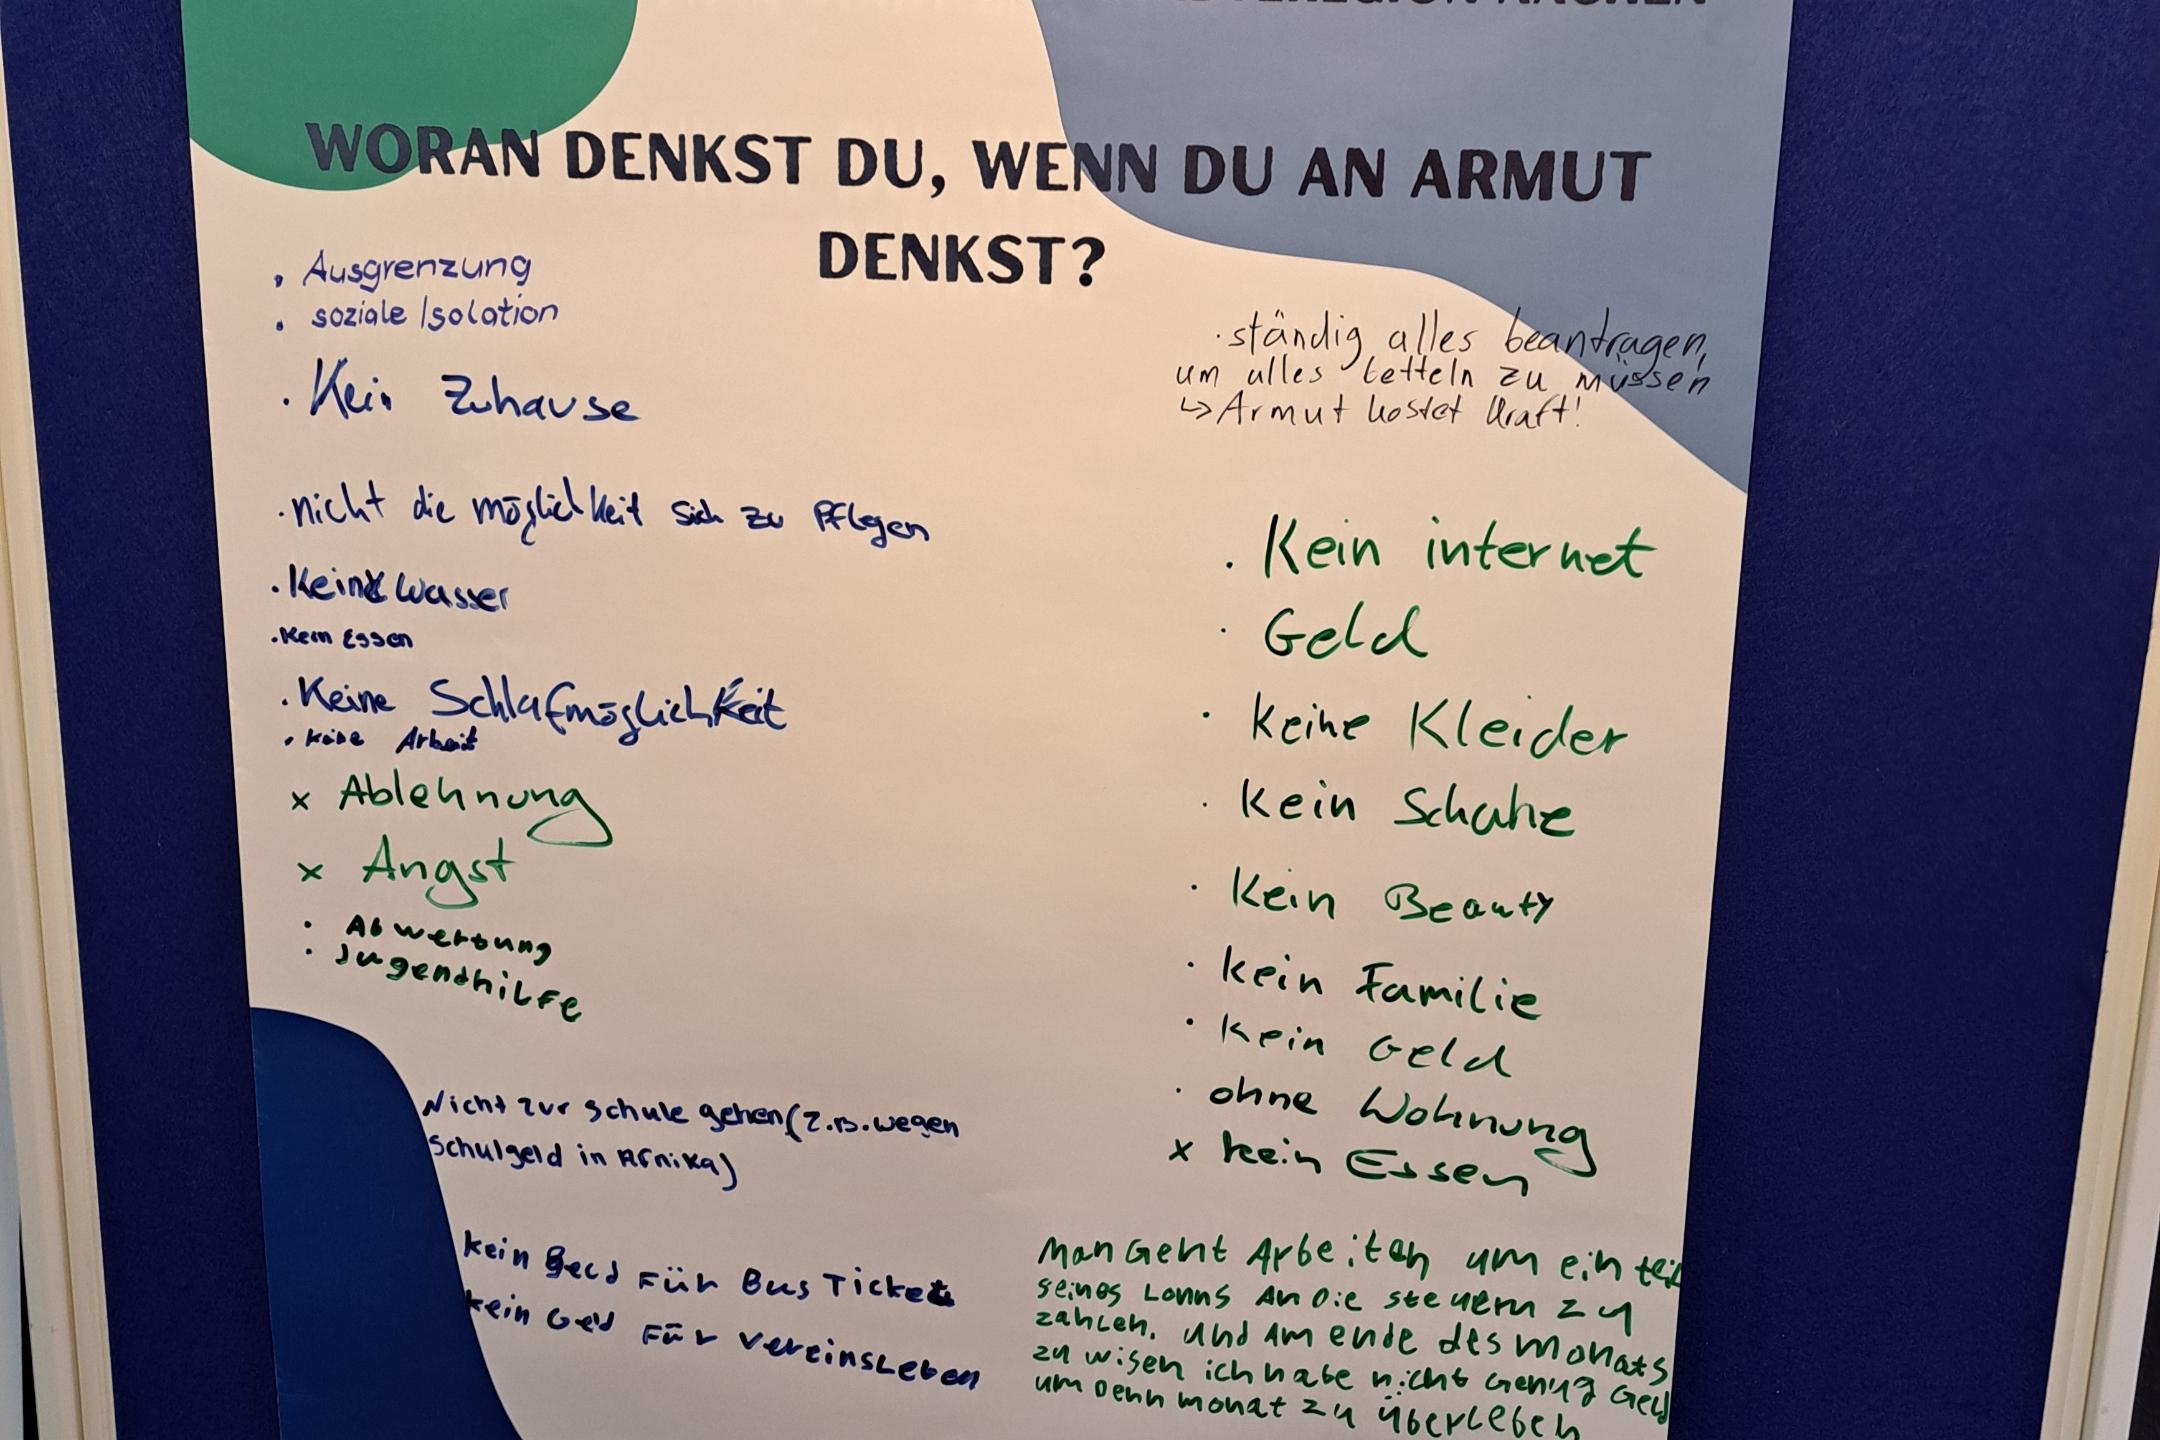 WORAN DENKST DU, WENN DU AN ARMUT
DENKST?
. Ausgrenzung
. soziale Isolation
. Kein Zuhause
. nicht die möglichkeit sich zu Pflegen
. Kein Wasser
. Kein Essen
. Keine Schlafmöglichkeit
. keine Arbeit
x Ablehnung
x Angst
. Abwertung
. Jugendhilfe
Nicht zur schule gehen (z.B. wegen
Schulgeld in Afrika)
kein geld Für Bus Ticket
kein Geld Für Vereinsleben
· ständig alles beantragen,
um alles betteln zu müssen
↳ Armut kostet Kraft!
. Kein internet
· Geld
· keine Kleider
· kein Schuhe
· kein Beauty
· kein Familie
· kein Geld
· ohne Wohnung
x kein Essen
Man Geht Arbeiten um ein teil
seines Lohns An Die steuern zu
zahlen. und Am ende des monats
zu wisen ich habe nicht Genug Geld
um Denn monat zu überleben